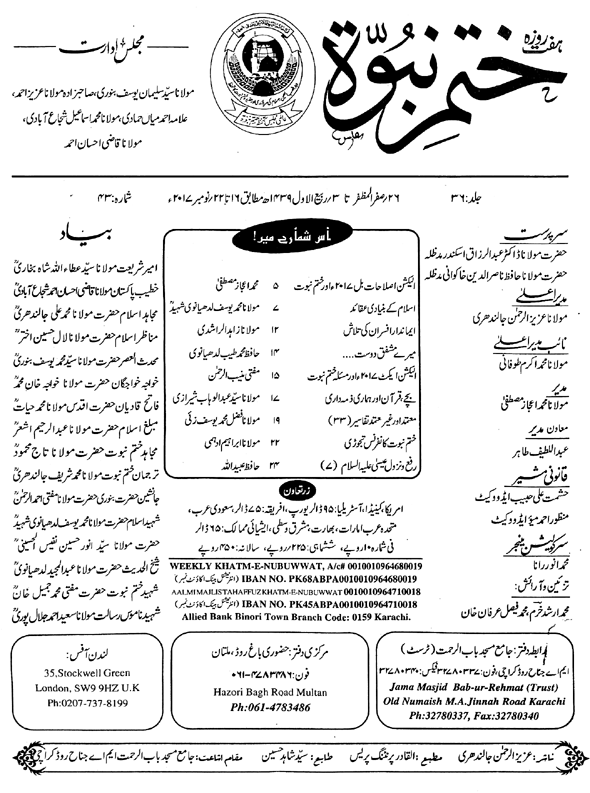 ہفت روزہ
ختم نبوّة
مجلس ادارت
مولانا سیّد سلیمان یوسف بنوری، صاحبزادہ مولانا عزیز احمد،
علامہ احمد میاں حمادی، مولانا محمد اسماعیل شجاع آبادی،
مولانا قاضی احسان احمد
جلد: ۳۶
۲۶ صفر المظفر تا ۳ ربیع الاول ۱۴۳۹ھ مطابق ۱۶ تا ۲۲ نومبر ۲۰۱۷ء
شمارہ: ۴۳
سرپرست
حضرت مولانا ڈاکٹر عبدالرزاق اسکندر مدظلہ
حضرت مولانا حافظ ناصر الدین خاکوانی مدظلہ
مدیر اعلیٰ
مولانا عزیز الرحمٰن جالندھری
نائب مدیر اعلیٰ
مولانا محمد اکرم طوفانی
مدیر
مولانا محمد اعجاز مصطفیٰ
معاون مدیر
عبداللطیف طاہر
قانونی مشیر
حشمت علی حبیب ایڈووکیٹ
منظور احمد میؤ ایڈووکیٹ
سرکولیشن منیجر
محمد انور رانا
تزئین و آرائش:
محمد ارشد خرم، محمد فیصل عرفان خان
اس شمارے میں!
الیکشن اصلاحات بل ۲۰۱۷ء اور ختم نبوت ۵ محمد اعجاز مصطفیٰ
اسلام کے بنیادی عقائد ۷ مولانا محمد یوسف لدھیانوی شہیدؒ
ایماندار افسران کی تلاش ۱۲ مولانا زاہد الراشدی
میرے مشفق دوست.... ۱۴ حافظ محمد طیب لدھیانوی
الیکشن ایکٹ ۲۰۱۷ء اور مسئلہ ختم نبوت ۱۵ مفتی منیب الرحمٰن
بچے، قرآن اور ہماری ذمہ داری ۱۷ مولانا سیّد عبدالوہاب شیرازی
معتمد اور غیر معتمد تفاسیر (۳۳) ۱۹ مولانا فضل محمد یوسف زئی
ختم نبوت کانفرنس تجوڑی ۲۲ مولانا ابراہیم ادہمی
رفع و نزول عیسیٰ علیہ السلام (۷) ۲۴ حافظ عبیداللہ
بیاد
امیر شریعت مولانا سیّد عطاء اللہ شاہ بخاریؒ
خطیب پاکستان مولانا قاضی احسان احمد شجاع آبادیؒ
مجاہد اسلام حضرت مولانا محمد علی جالندھریؒ
مناظر اسلام حضرت مولانا لال حسین اخترؒ
محدث العصر حضرت مولانا سیّد محمد یوسف بنوریؒ
خواجہ خواجگان حضرت مولانا خواجہ خان محمدؒ
فاتح قادیان حضرت اقدس مولانا محمد حیاتؒ
مبلغ اسلام حضرت مولانا عبدالرحیم اشعرؒ
مجاہد ختم نبوت حضرت مولانا تاج محمودؒ
ترجمان ختم نبوت مولانا محمد شریف جالندھریؒ
جانشین حضرت بنوری حضرت مولانا مفتی احمد الرحمٰنؒ
شہید اسلام حضرت مولانا محمد یوسف لدھیانوی شہیدؒ
حضرت مولانا سیّد انور حسین نفیس الحسینیؒ
شیخ الحدیث حضرت مولانا عبدالمجید لدھیانویؒ
شہید ختم نبوت حضرت مفتی محمد جمیل خانؒ
شہید ناموس رسالت مولانا سعید احمد جلال پوریؒ
زر تعاون
امریکا، کینیڈا، آسٹریلیا: ۹۵ ڈالر یورپ، افریقہ: ۷۵ ڈالر، سعودی عرب،
متحدہ عرب امارات، بھارت، مشرق وسطیٰ، ایشیائی ممالک: ۶۵ ڈالر
فی شمارہ ۱۰ روپے، ششماہی: ۲۲۵ روپے، سالانہ: ۴۵۰ روپے
WEEKLY KHATM-E-NUBUWWAT, A/c# 0010010964680019
IBAN NO. PK68ABPA0010010964680019 (انٹرنیشنل بینک اکاؤنٹ نمبر)
AALMI MAJLIS TAHAFFUZ KHATM-E-NUBUWWAT 0010010964710018
IBAN NO. PK45ABPA0010010964710018 (انٹرنیشنل بینک اکاؤنٹ نمبر)
Allied Bank Binori Town Branch Code: 0159 Karachi.
رابطہ دفتر: جامع مسجد باب الرحمت (ٹرسٹ)
ایم اے جناح روڈ کراچی، فون: ۳۲۷۸۰۳۳۷ فیکس: ۳۲۷۸۰۳۴۰
Jama Masjid Bab-ur-Rehmat (Trust)
Old Numaish M.A.Jinnah Road Karachi
Ph:32780337, Fax:32780340
مرکزی دفتر: حضوری باغ روڈ، ملتان
فون: ۰۶۱-۴۷۸۳۴۸۶
Hazori Bagh Road Multan
Ph:061-4783486
لندن آفس:
35,Stockwell Green
London, SW9 9HZ U.K
Ph:0207-737-8199
ناشر: عزیز الرحمٰن جالندھری مطبع: القادر پرنٹنگ پریس طابع: سیّد شاہد حسین مقام اشاعت: جامع مسجد باب الرحمت ایم اے جناح روڈ کراچی